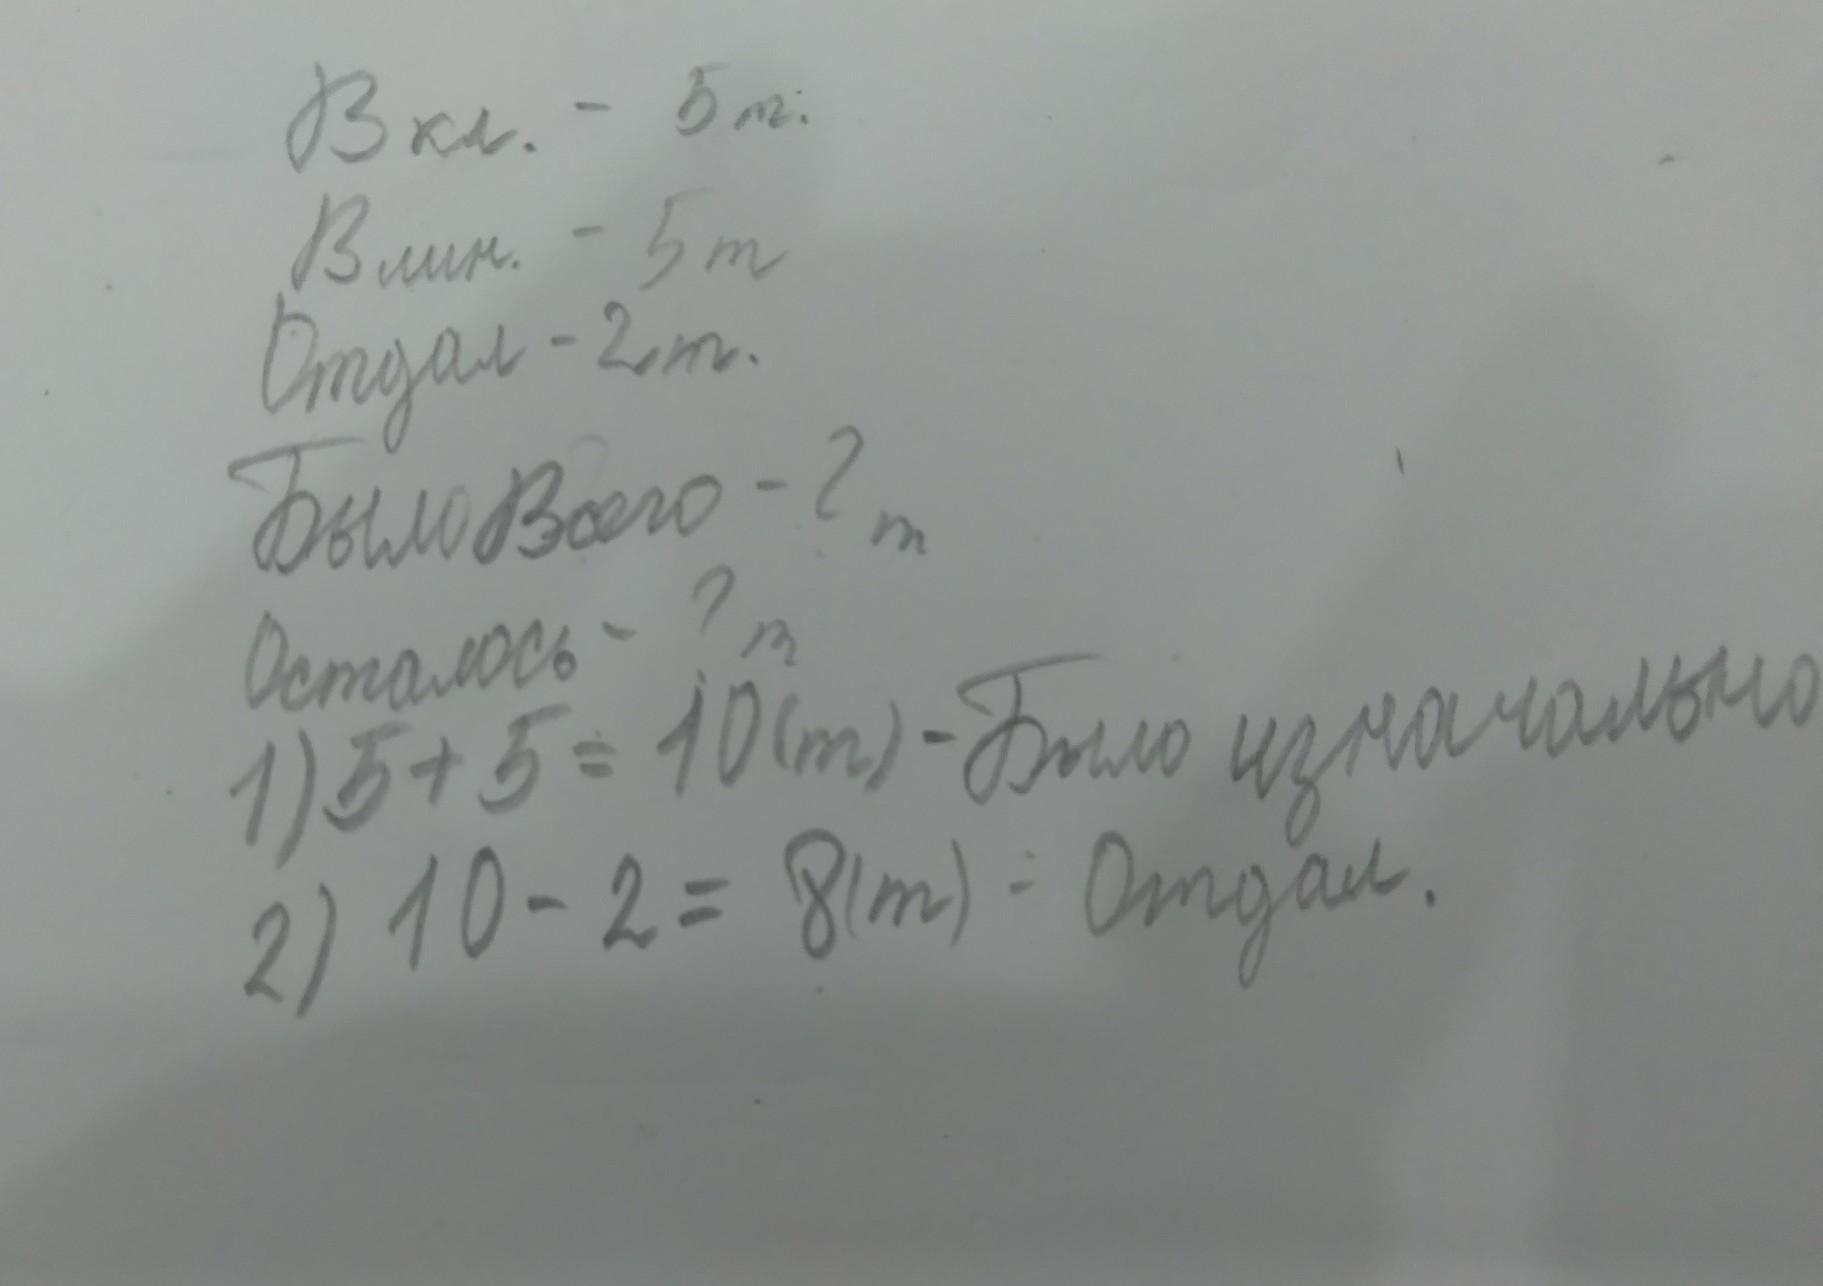 В кл. - 5 т.
В лин. - 5 т
Отдал - 2 т.
Было Всего - ? т
Осталось - ? т
1) 5 + 5 = 10 (т) - Было изначально
2) 10 - 2 = 8 (т) - Отдал.